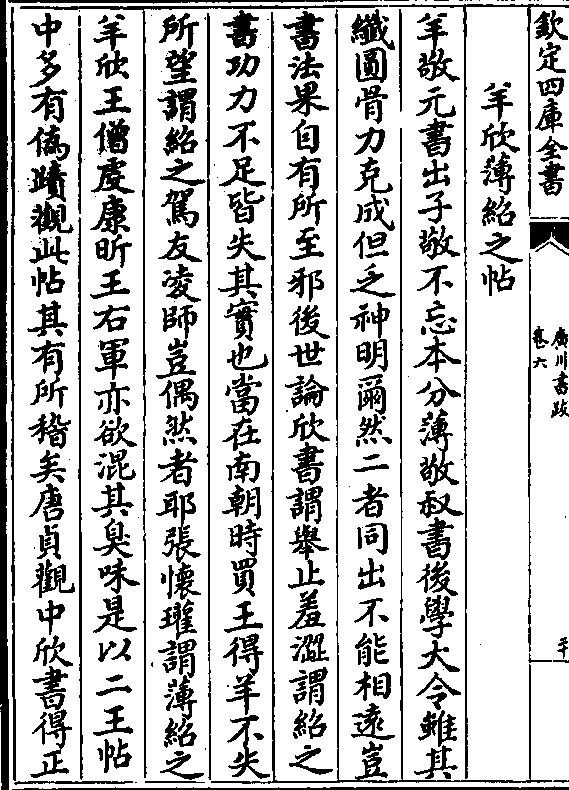 欽定四庫全書
廣川書跋
卷六
羊欣薄紹之帖
羊敬元書出子敬不忘本分薄敬叔書後學大令雖其
纖圓骨力克成但乏神明爾然二者同出不能相遠豈
書法果自有所至邪後世論欣書謂舉止羞澀謂紹之
書功力不足皆失其實也當在南朝時買王得羊不失
所望謂紹之駕友凌師豈偶然者耶張懷瓘謂薄紹之
羊欣王僧虔康昕王右軍亦欲混其臭味是以二王帖
中多有偽蹟觀此帖其有所稽矣唐貞觀中欣書得正